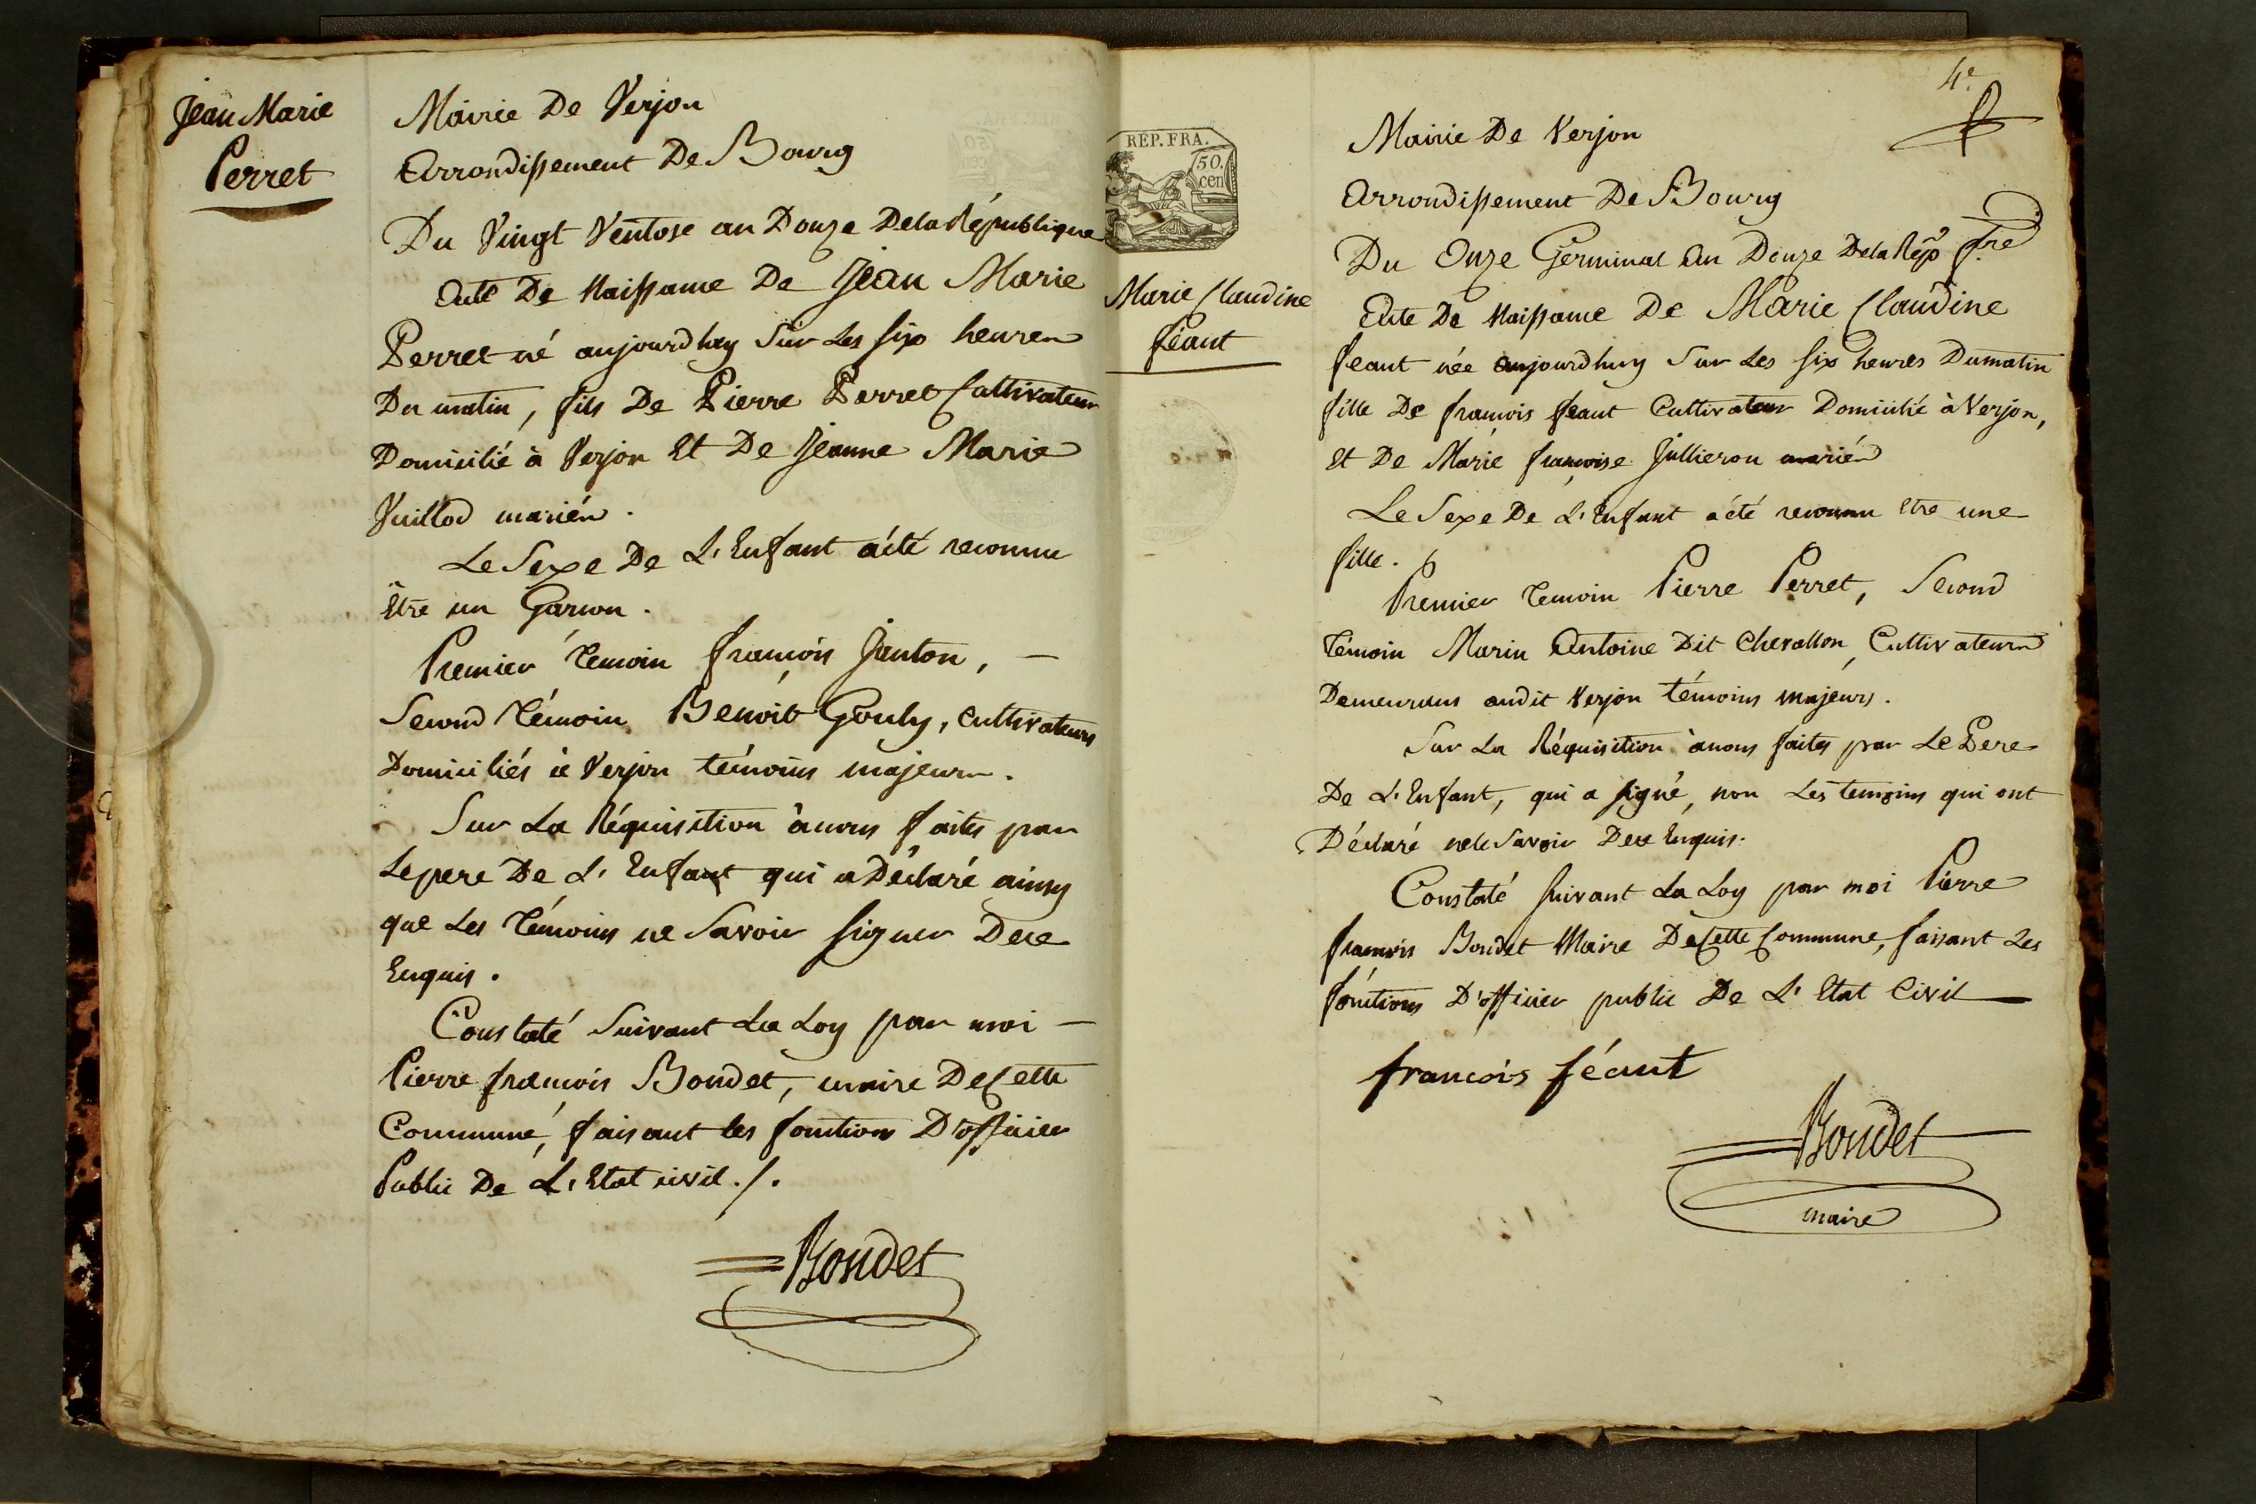 Jean Marie
Perret
Mairie De Verjon
Arrondissement De Bourg
Du Vingt Ventose an Douze De la République
Acte De Naissance De Jean Marie
Perret né aujourdhuy Sur Les six heures
Du matin, fils De Pierre Perret Cultivateur
Domicilié à Verjon Et De Jeanne Marie
Vuillod mariés.
Le Sexe De L'Enfant a été reconnu
Etre un Garcon.
Premier témoin francois Janton, —
Second témoin Benoit Gouly, cultivateurs
Domiciliés à Verjon témoins majeurs.
Sur La Réquisition à nous faites par
Le pere De L'Enfant qui a Déclaré ainsy
que Les témoins ne Savoir signer De ce
Enquis.
Constaté Suivant La Loy par moi —
Pierre francois Bondet, maire De Cette
Commune, faisant les fonctions D'officier
Public De L'Etat civil ./.
Bondet
4e
REP. FRA.
50.
cen
Marie Claudine
féant
Mairie De Verjon
Arrondissement De Bourg
Du Onze Germinal An Douze De la Rép fre
Acte De Naissance De Marie Claudine
feant née aujourdhuy Sur Les six heures Du matin
fille De francois feant Cultivateur Domicilié à Verjon,
Et De Marie francoise Jullieron mariés
Le Sexe De L'Enfant a été reconnu Etre une
fille.
Premier temoin Pierre Perret, Second
témoin Marin Antoine Dit Chevallon, Cultivateurs
Demeurans audit Verjon témoins majeurs.
Sur La Réquisition à nous faites par Le Pere
De L'Enfant, qui a signé, non Les temoins qui ont
Déclaré ne le Savoir De ce Enquis.
Constaté suivant La Loy par moi Pierre
francois Bondet Maire De Cette Commune, faisant Les
fonctions D'officier public De L'Etat Civil —
francois féant
Bondet
maire